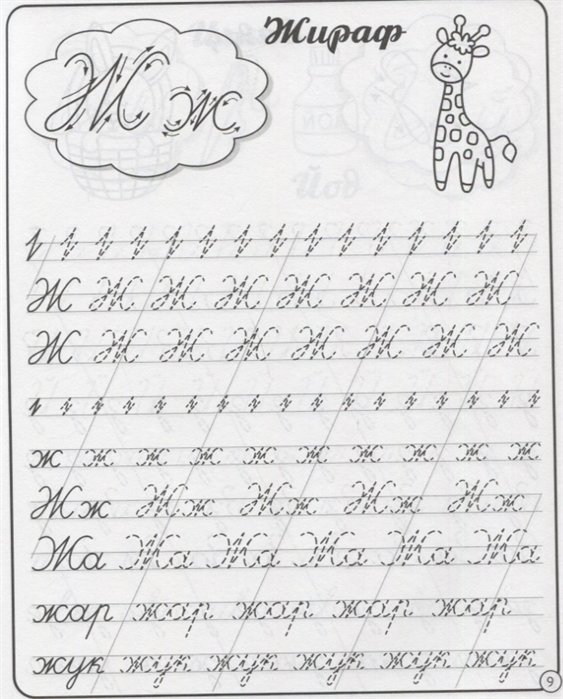 Жираф
Ж ж
Ж Ж Ж Ж Ж Ж Ж Ж
Ж Ж Ж Ж Ж Ж Ж Ж
ж ж ж ж ж ж ж ж ж ж
Жж Жж Жж Жж Жж
Жа Жа Жа Жа Жа Жа
жар жар жар жар жар
жук жук жук жук жук жук
9